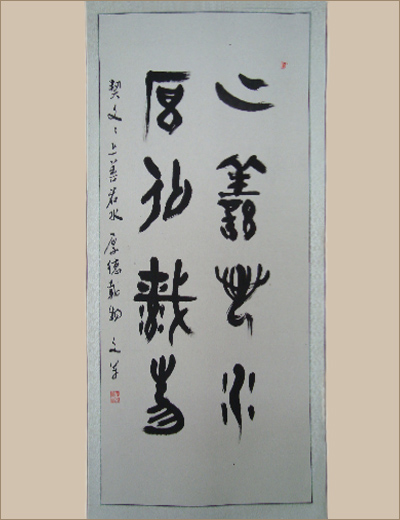 上善若水
厚德載物
契文：上善若水 厚德載物 文军